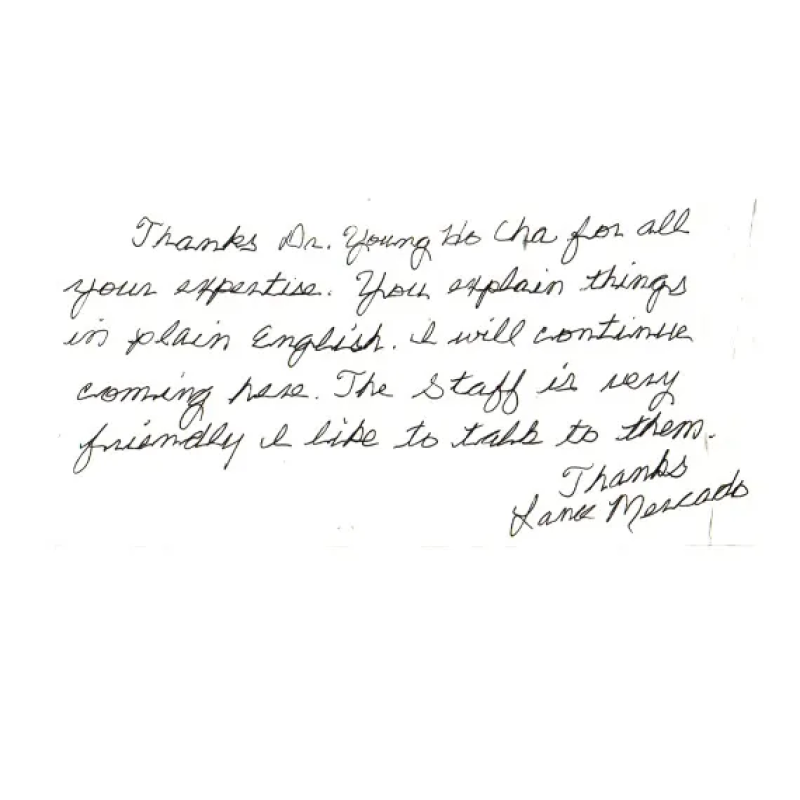 Thanks Dr. Young Ho Cha for all
your expertise. You explain things
in plain English. I will continue
coming here. The Staff is very
friendly I like to talk to them.
Thanks
Mercado